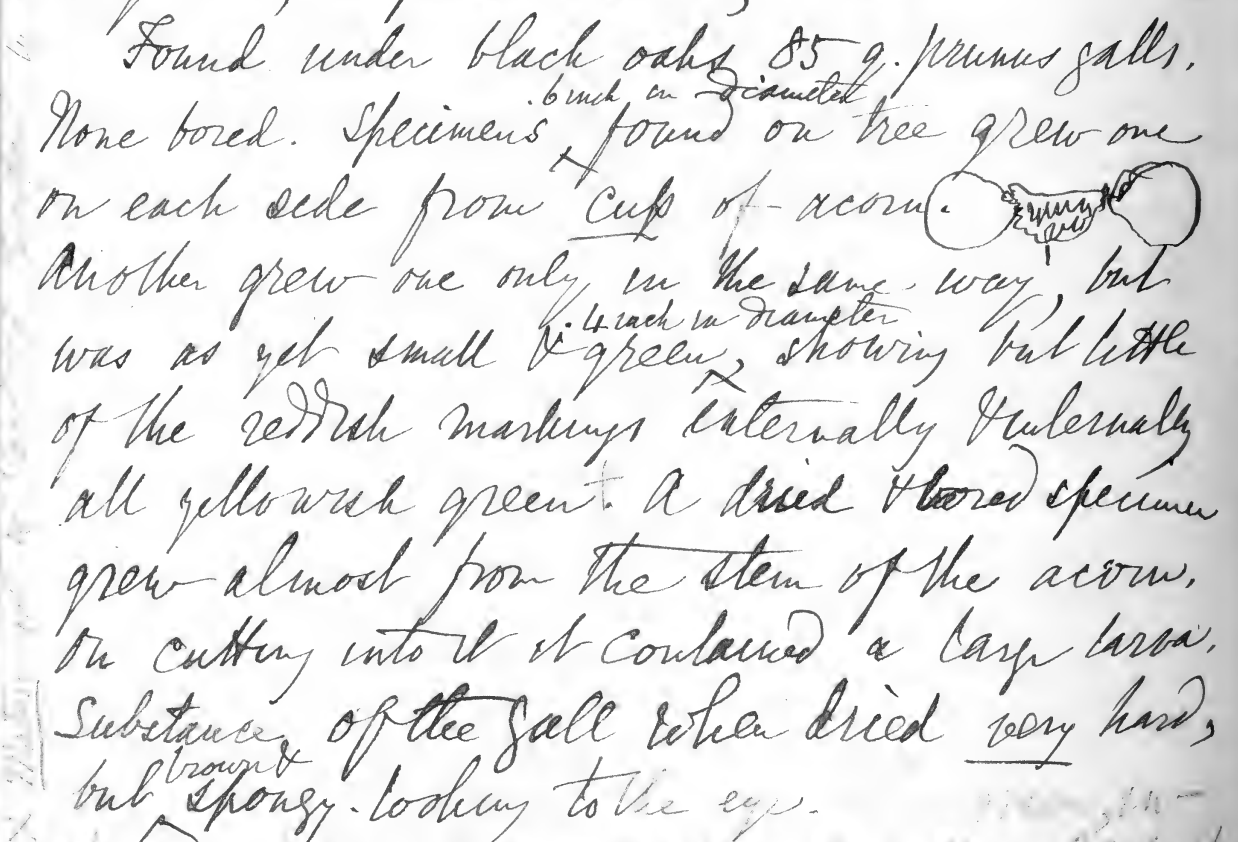 Found under black oaks 85 q. prunus galls.
.6 inch in diameter
None bored. Specimens found on tree grew one
on each side from cup of acorn.
Another grew one only in the same way, but
.4 inch in diameter
was as yet small & green, showing but little
of the reddish markings externally & internally
all yellowish green. A dried & bored specimen
grew almost from the stem of the acorn.
On cutting into it it contained a large larva.
Substance of the gall when dried very hard,
brown &
but spongy-looking to the eye.